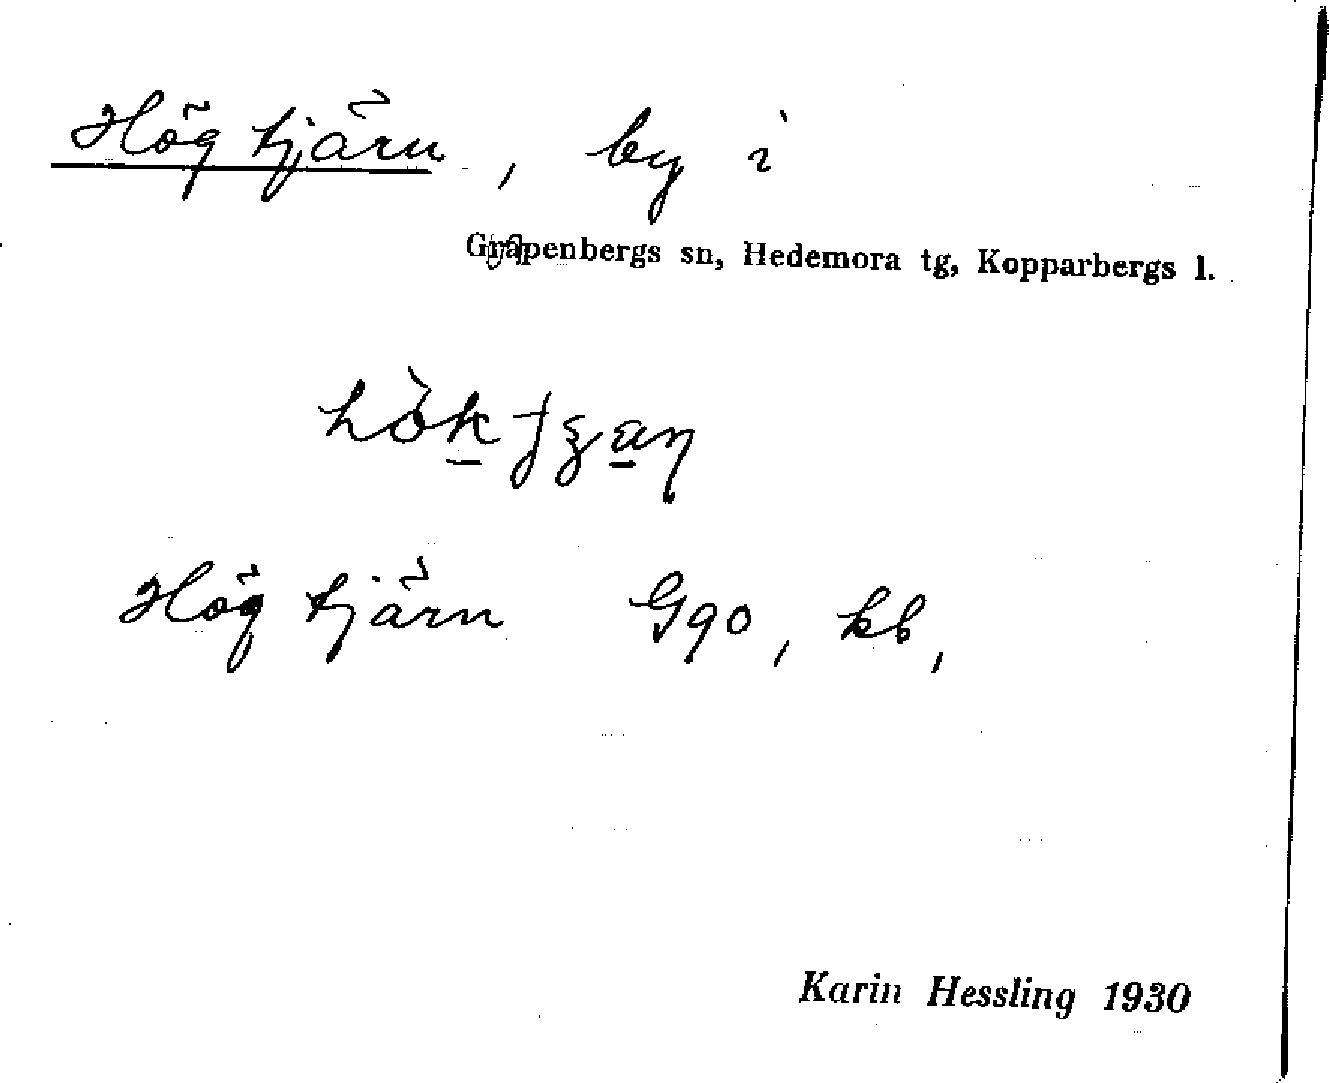 Högtjärn, by i
Grapenbergs sn, Hedemora tg, Kopparbergs l.
Högtjärn Gqo, kb,
Karin Hessling 1930